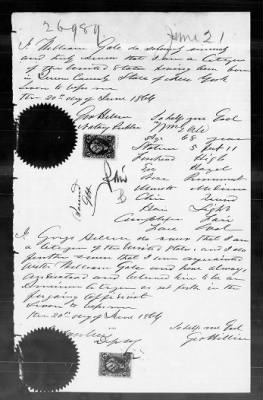 26989 June 21
I William Gale do solemnly sincerely
and truly swear that I am a Citizen
of the United States having been born
in Queens County State of New York
Sworn to before me
the 20th day of June 1864
So help me God
Wm Gale
Notary Public
Age 68 years
Stature 5 feet 11
Forehead High
Eyes Hazel
Nose Prominent
Mouth Medium
Chin Round
Hair Light
Complexion Fair
Face Oval
I George Hillier do swear that I am
a Citizen of the United States, and I do
further swear that I am acquainted
with William Gale and have always
understood and believed him to be an
American Citizen as set forth in the
foregoing affidavit
Sworn to before me
the 20th day of June 1864
So help me God
Geo Hillier